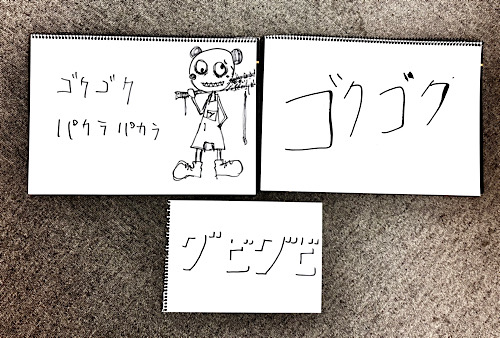 ゴクゴク
パクラパカラ
ゴクゴク
グビグビ